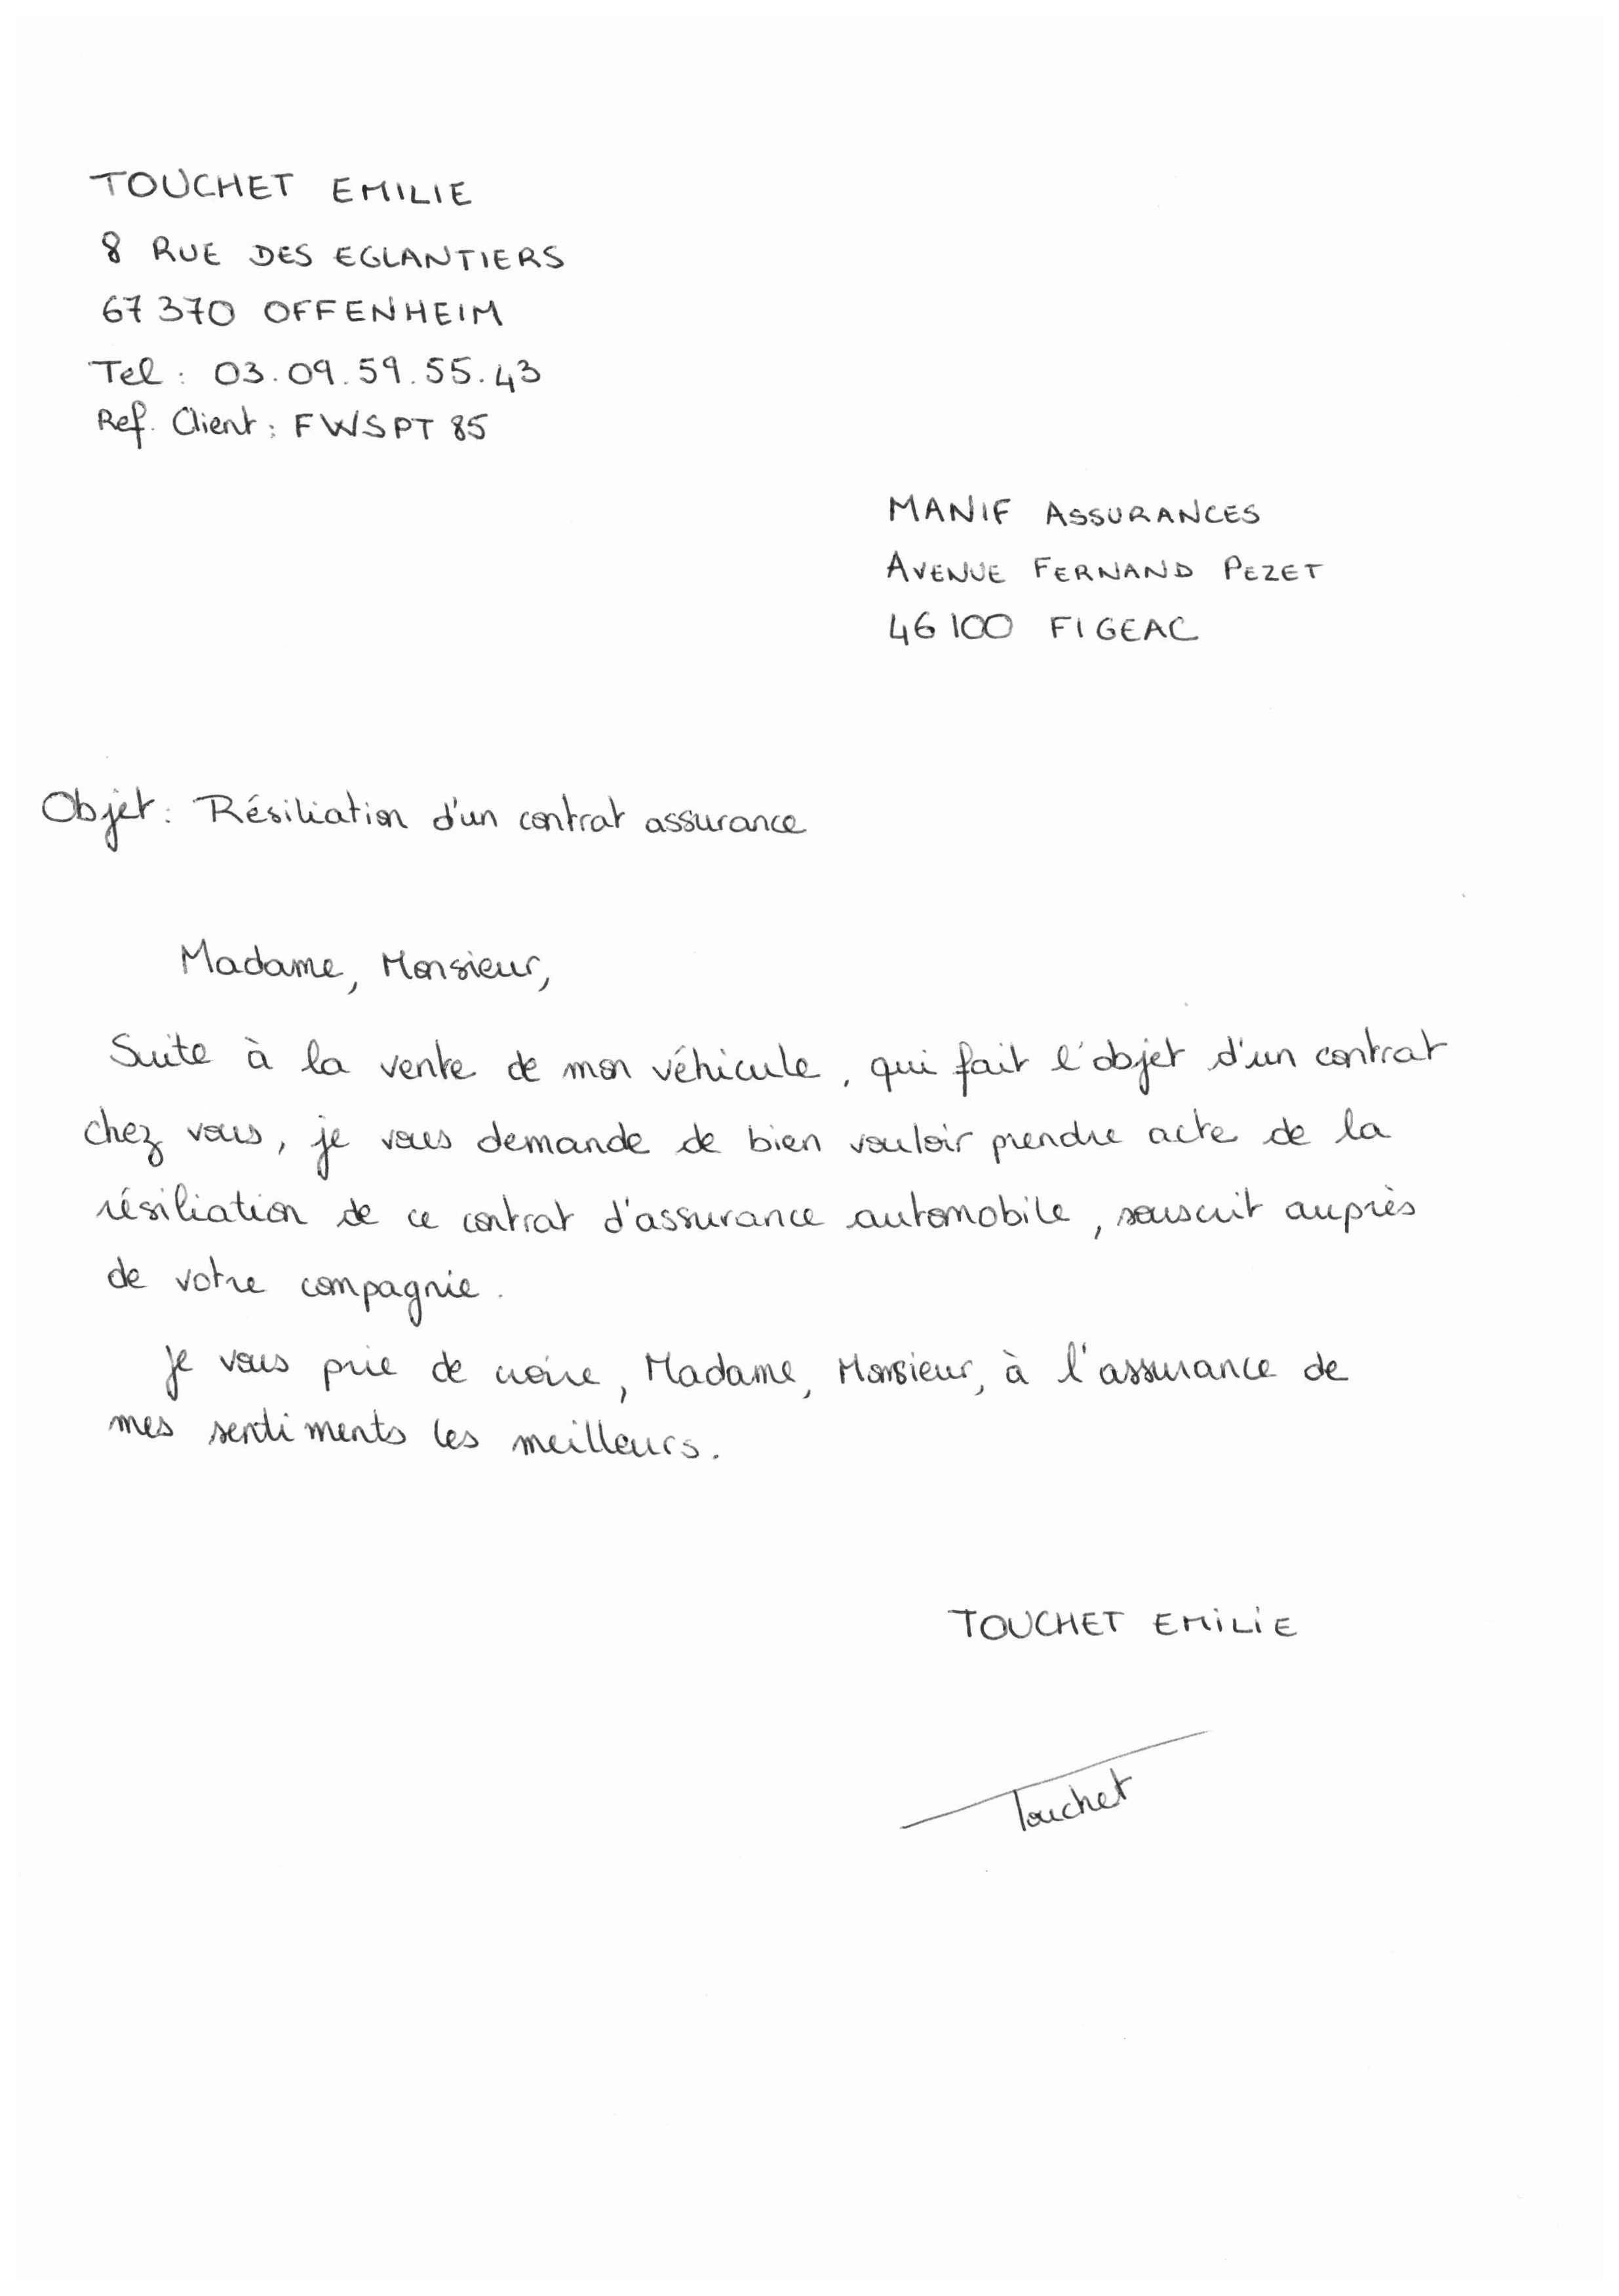 TOUCHET EMILIE
8 RUE DES EGLANTIERS
67 370 OFFENHEIM
Tel : 03.09.59.55.43
Ref. Client : FWSPT 85
MANIF ASSURANCES
AVENUE FERNAND PEZET
46 100 FIGEAC
Objet : Résiliation d'un contrat assurance
Madame, Monsieur,
Suite à la vente de mon véhicule, qui fait l'objet d'un contrat
chez vous, je vous demande de bien vouloir prendre acte de la
résiliation de ce contrat d'assurance automobile, souscrit auprès
de votre compagnie.
Je vous prie de croire, Madame, Monsieur, à l'assurance de
mes sentiments les meilleurs.
TOUCHET EMILIE
Touchet